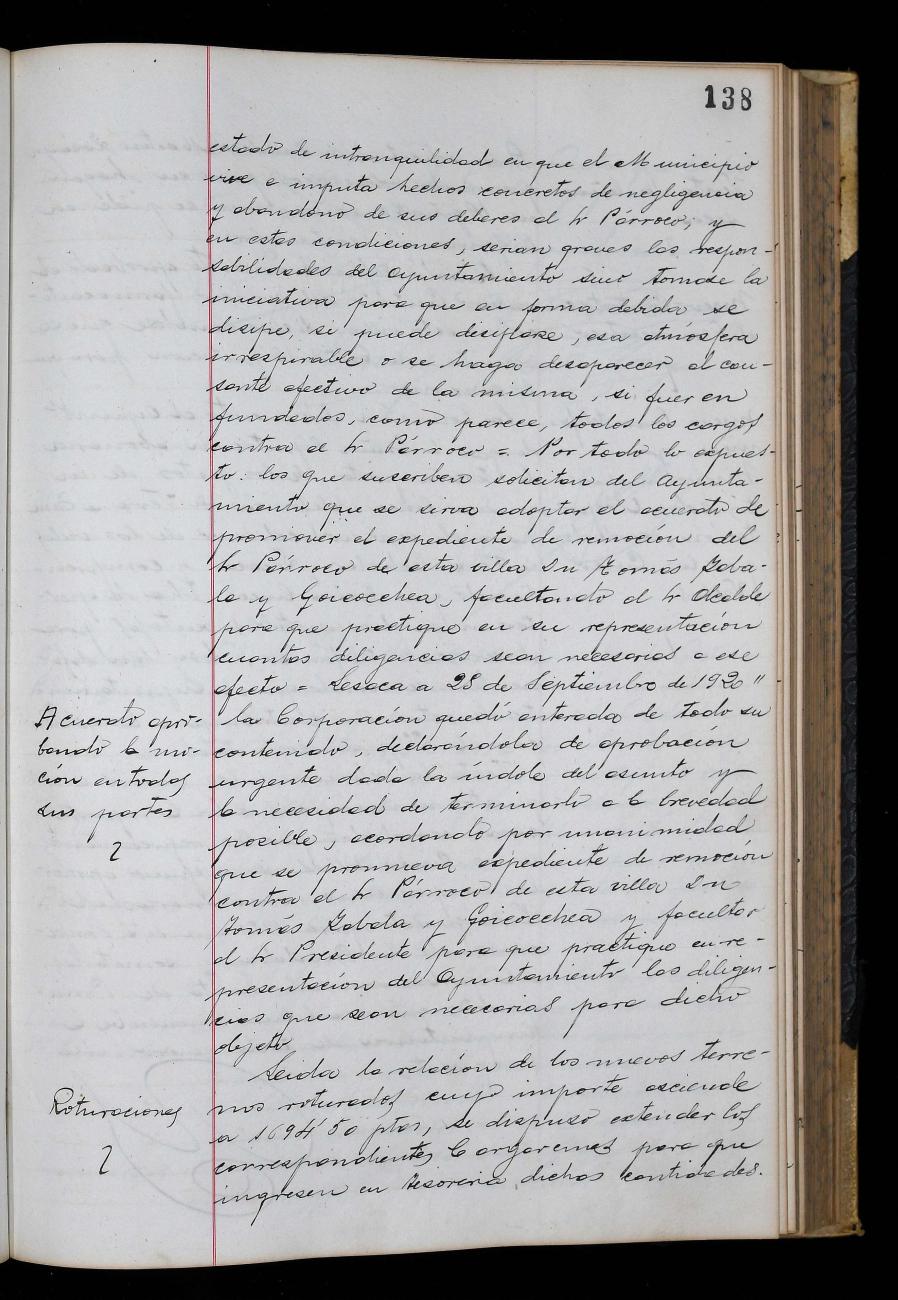 138
estado de intranquilidad en que el Municipio
vive e imputa hechos concretos de negligencia
y abandono de sus deberes al Sr Párroco; y
en estas condiciones, serian graves las respon-
sabilidades del Ayuntamiento sino tomase la
iniciativa para que en forma debida se
disipe, si puede desiparse, esa atmósfera
irrespirable o se haga desaparecer al cau-
sante efectivo de la misma, si fuer en
fundados, como parece, todos los cargos
contra el Sr Párroco = Por todo lo expues-
to: los que suscriben solicitan del Ayunta-
miento que se sirva adoptar el acuerdo de
promover el expediente de remoción del
Sr Párroco de esta villa Dn Tomás Zaba-
la y Goicoechea, facultando al Sr Alcalde
para que practique en su representacion
cuantas diligencias sean necesarias a ese
efecto = Lesaca a 28 de Septiembre de 1920"
Acuerdo apro-
bando la mo-
ción en todas
sus partes
la Corporación quedó enterada de todo su
contenido, declarándola de aprobación
urgente dada la índole del asunto y
la necesidad de terminarlo a la brevedad
posible, acordando por unanimidad
que se promueva expediente de remoción
contra el Sr Párroco de esta villa Dn
Tomás Zabala y Goicoechea y facultar
al Sr Presidente para que practique en re-
presentación del Ayuntamiento las diligen-
cias que sean nececarias para dicho
objeto
Roturaciones
Leida la relación de los nuevos terre-
nos roturados cuyo importe asciende
a 1694'50 ptas, se dispuso extender los
correspondientes Cargaremes para que
ingresen en tesoreria dichas cantidades.